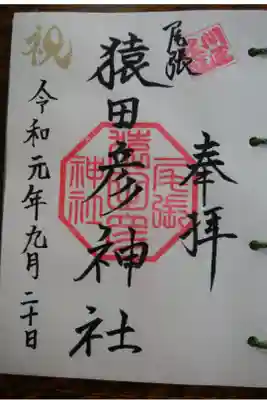 奉拝
尾張
猿田彦神社
祝
令和元年九月二十日
尾張猿田彦神社